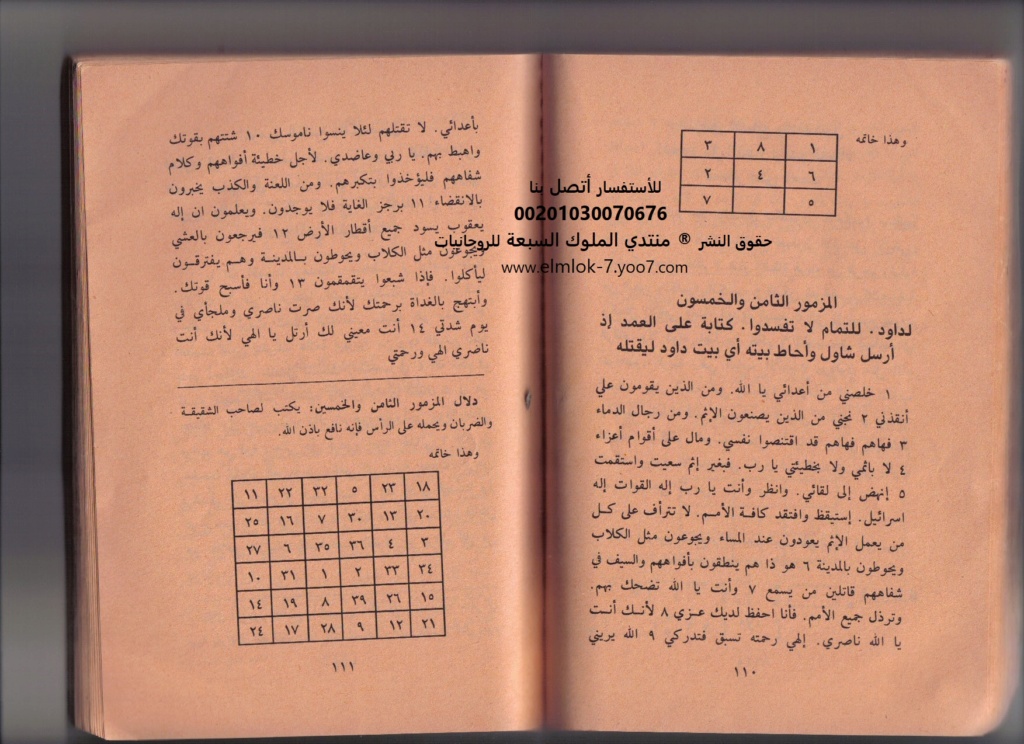 وهذا خاتمه
١ ٨ ٣
٦ ٤ ٢
٥ ٧
المزمور الثامن والخمسون
لداود. للتمام لا تفسدوا. كتابة على العمد إذ
أرسل شاول وأحاط بيته أي بيت داود ليقتله
١ خلصني من أعدائي يا الله. ومن الذين يقومون علي
أنقذني ٢ نجني من الذين يصنعون الإثم. ومن رجال الدماء
٣ فهاهم فهاهم قد اقتنصوا نفسي. ومال على أقوام أعزاء
٤ لا باثمي ولا بخطيئتي يا رب. فبغير إثم سعيت واستقمت
٥ إنهض إلى لقائي. وانظر وأنت يا رب إله القوات إله
اسرائيل. إستيقظ وافتقد كافة الأمم. لا تترأف على كل
من يعمل الإثم يعودون عند المساء ويجوعون مثل الكلاب
ويحوطون بالمدينة ٦ هو ذا هم ينطقون بأفواههم والسيف في
شفاههم قائلين من يسمع ٧ وأنت يا الله تضحك بهم.
وترذل جميع الأمم. فأنا احفظ لديك عزي ٨ لأنك أنت
يا الله ناصري. إلهي رحمته تسبق فتدركي ٩ الله يريني
١١٠
بأعدائي. لا تقتلهم لئلا ينسوا ناموسك ١٠ شتتهم بقوتك
واهبط بهم. يا ربي وعاضدي. لأجل خطيئة أفواههم وكلام
شفاههم فليؤخذوا بتكبرهم. ومن اللعنة والكذب يخبرون
بالانقضاء ١١ برجز الغاية فلا يوجدون. ويعلمون ان إله
يعقوب يسود جميع أقطار الأرض ١٢ فيرجعون بالعشي
ويجوعون مثل الكلاب ويحوطون بالمدينة وهم يفترقون
ليأكلوا. فإذا شبعوا يتقمقمون ١٣ وأنا فأسبح قوتك.
وأبتهج بالغداة برحمتك لأنك صرت ناصري وملجأي في
يوم شدتي ١٤ أنت معيني لك أرتل يا الهي لأنك أنت
ناصري الهي ورحمتي
دلال المزمور الثامن والخمسين: يكتب لصاحب الشقيقة
والضربان ويحمله على الرأس فإنه نافع باذن الله.
وهذا خاتمه
١٨ ٢٣ ٥ ٣٢ ٢٢ ١١
٢٠ ١٣ ٣٠ ٧ ١٦ ٢٥
٣ ٤ ٣٦ ٣٥ ٦ ٢٧
٣٤ ٣٣ ٢ ١ ٣١ ١٠
١٥ ٢٦ ٢٩ ٨ ١٩ ١٤
٢١ ١٢ ٩ ٢٨ ١٧ ٢٤
١١١
للأستفسار أتصل بنا
00201030070676
حقوق النشر ® منتدي الملوك السبعة للروحانيات
www.elmlok-7.yoo7.com